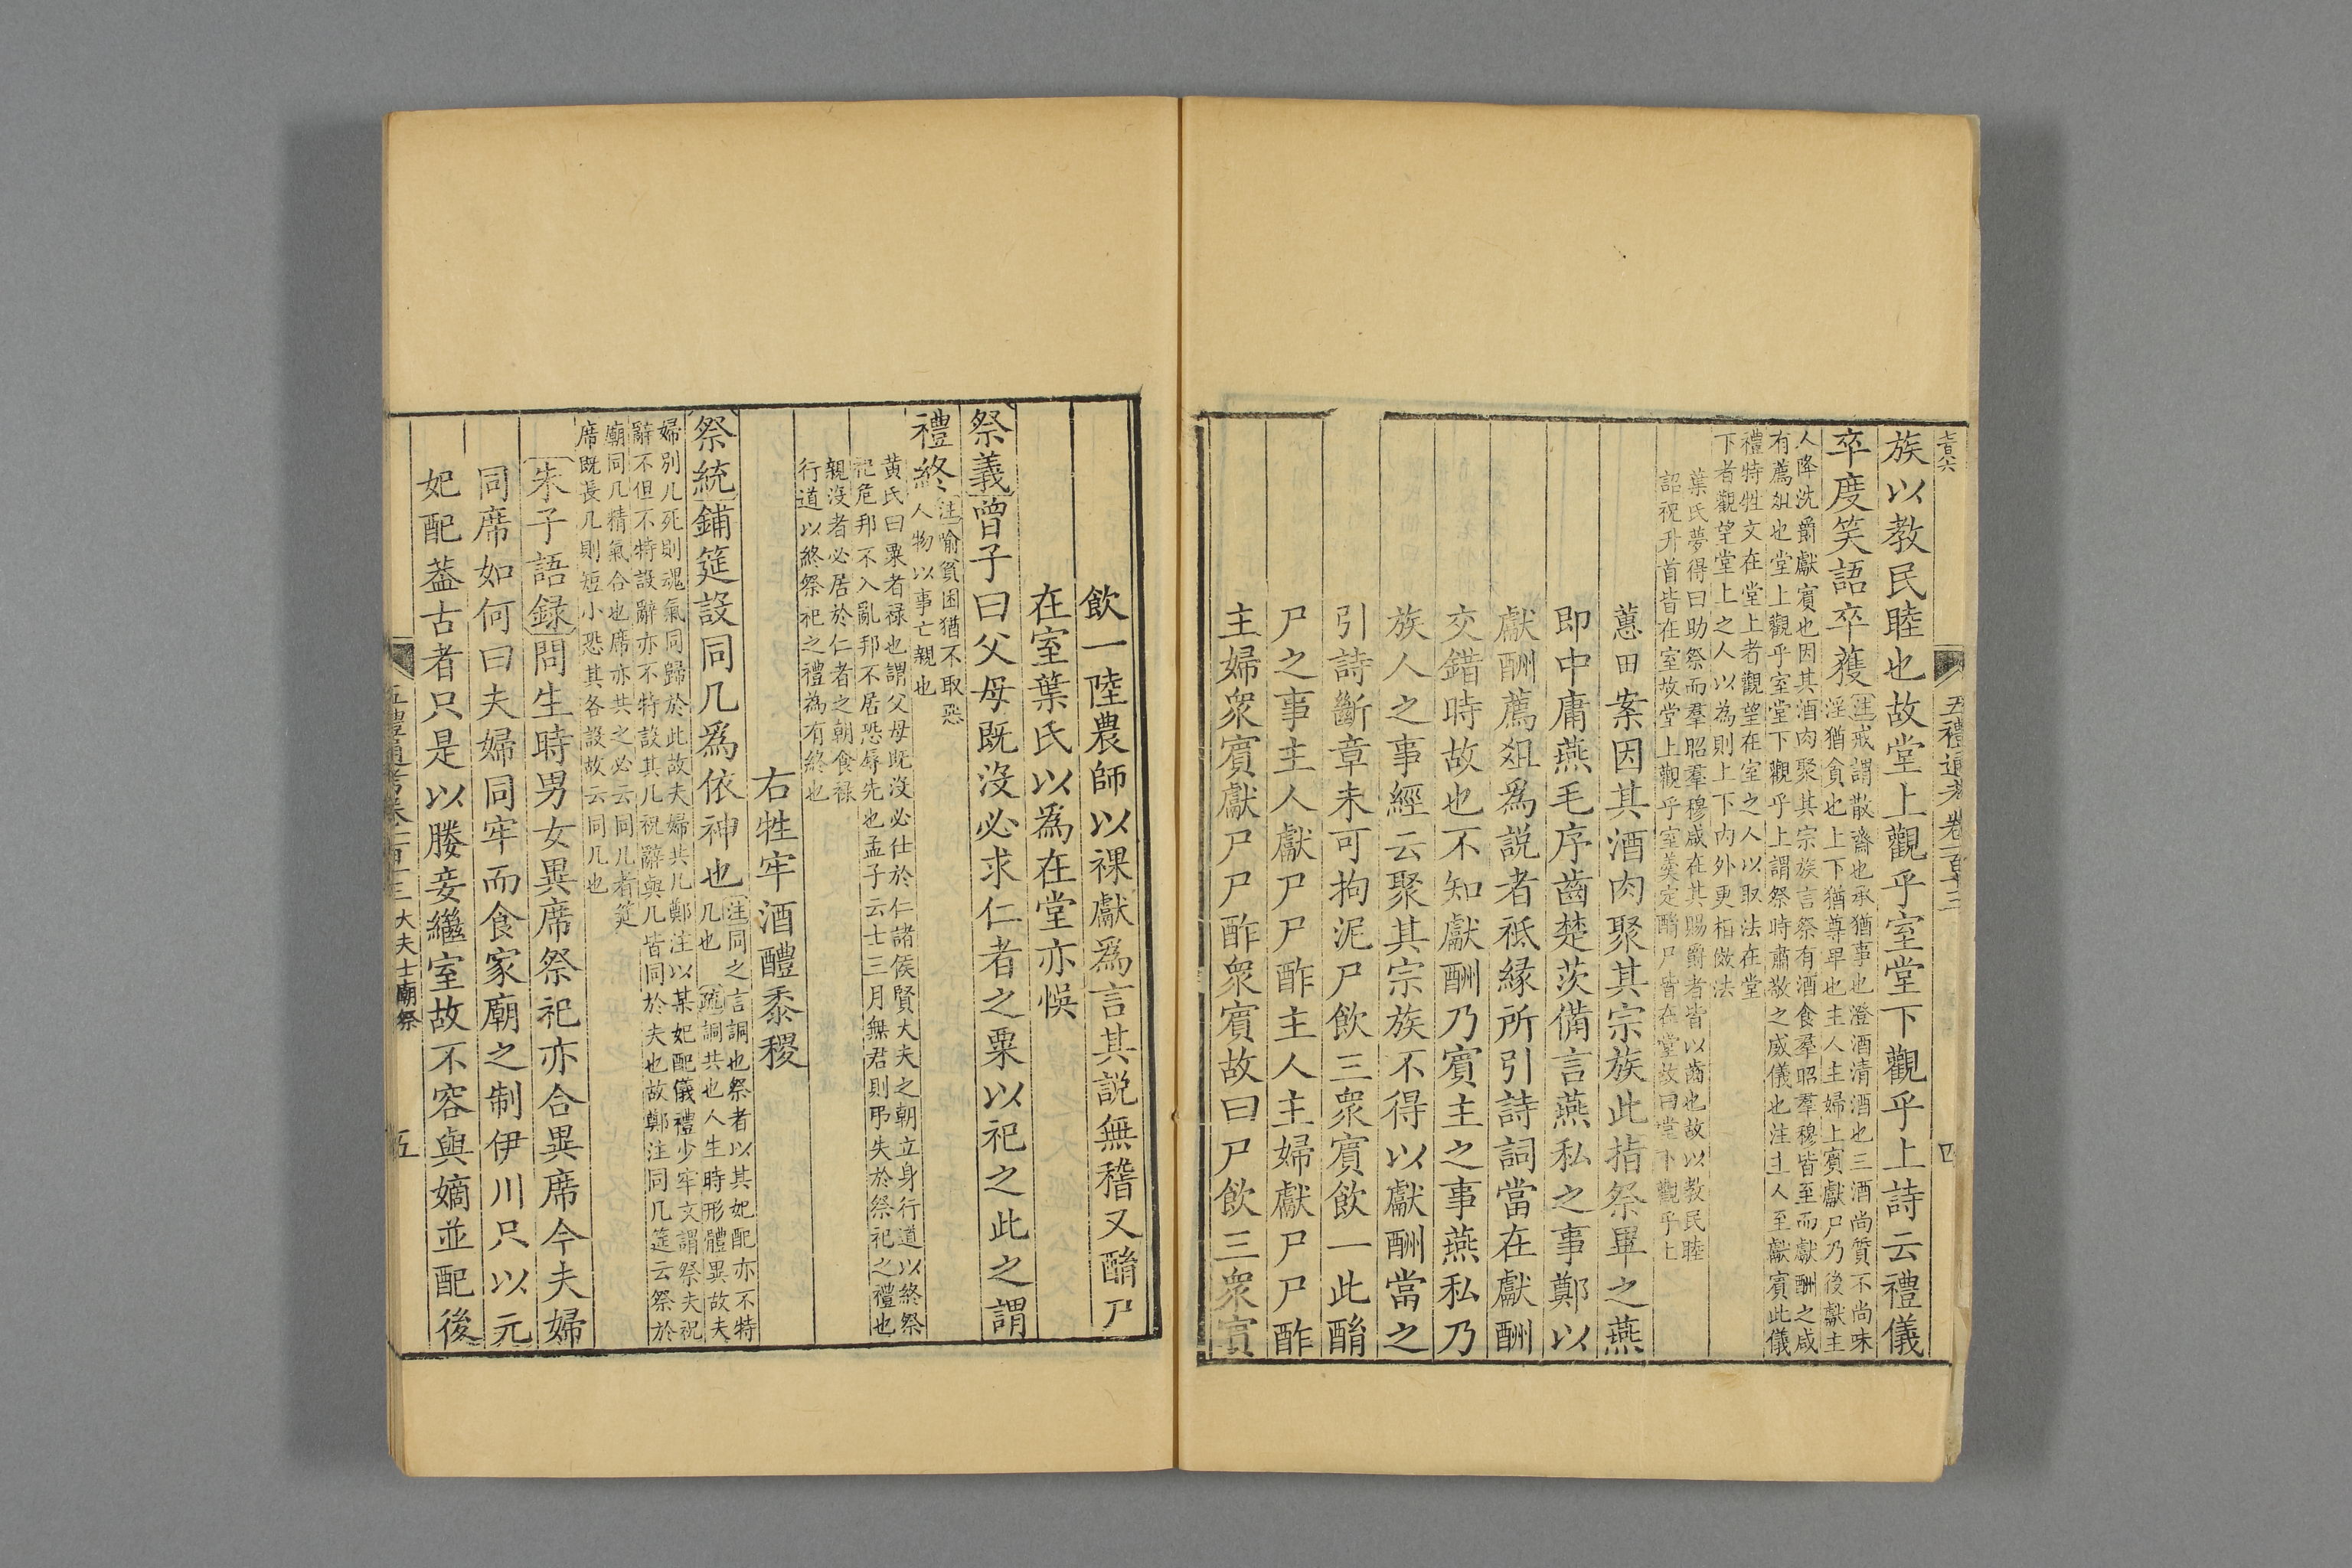 五禮通考卷一百十三
四
族以教民睦也故堂上觀乎室堂下觀乎上詩云禮儀
卒度笑語卒獲注戒謂散齋也承猶事也澄酒清酒也三酒尚質不尚味
淫猶貪也上下猶尊卑也主人主婦上賓獻尸乃後獻主
人降洗爵獻賓也因其酒肉聚其宗族言祭有酒食羣昭羣穆皆至而獻酬之咸
有薦俎也堂上觀乎室堂下觀乎上謂祭時肅敬之威儀也注主人至獻賓此儀
禮特牲文在堂上者觀望在室之人以取法在堂
下者觀望堂上之人以為則上下內外更相倣法
葉氏夢得曰助祭而羣昭羣穆咸在其賜爵者皆以齒也故以教民睦
詔祝升首皆在室故堂上觀乎室羹定酳尸皆在堂故曰堂下觀乎上
蕙田案因其酒肉聚其宗族此指祭畢之燕
即中庸燕毛序齒楚茨備言燕私之事鄭以
獻酬薦俎爲説者祗緣所引詩詞當在獻酬
交錯時故也不知獻酬乃賓主之事燕私乃
族人之事經云聚其宗族不得以獻酬當之
引詩斷章未可拘泥尸飲三衆賓飲一此酳
尸之事主人獻尸尸酢主人主婦獻尸尸酢
主婦衆賓獻尸尸酢衆賓故曰尸飲三衆賓
飲一陸農師以祼獻爲言其説無稽又酳尸
在室葉氏以爲在堂亦悞
祭義曾子曰父母既沒必求仁者之粟以祀之此之謂
禮終注喻貧困猶不取惡
人物以事亡親也
黄氏曰粟者禄也謂父母既沒必仕於仁諸侯賢大夫之朝立身行道以終祭
祀危邦不入亂邦不居恐辱先也孟子云士三月無君則弔失於祭祀之禮也
親沒者必居於仁者之朝食禄
行道以終祭祀之禮為有終也
右牲牢酒醴黍稷
祭統鋪筵設同几爲依神也注同之言詷也祭者以其妃配亦不特
几也疏詷共也人生時形體異故夫
婦別几死則魂氣同歸於此故夫婦共几鄭注以某妃配儀禮少牢文謂祭夫祝
辭不但不特設辭亦不特設其几祝辭與几皆同於夫也故鄭注同几筵云祭於
廟同几精氣合也席亦共之必云同几者筵
席既長几則短小恐其各設故云同几也
朱子語録問生時男女異席祭祀亦合異席今夫婦
同席如何曰夫婦同牢而食家廟之制伊川只以元
妃配葢古者只是以媵妾繼室故不容與嫡並配後
五禮通考卷一百十三 大夫士廟祭
五